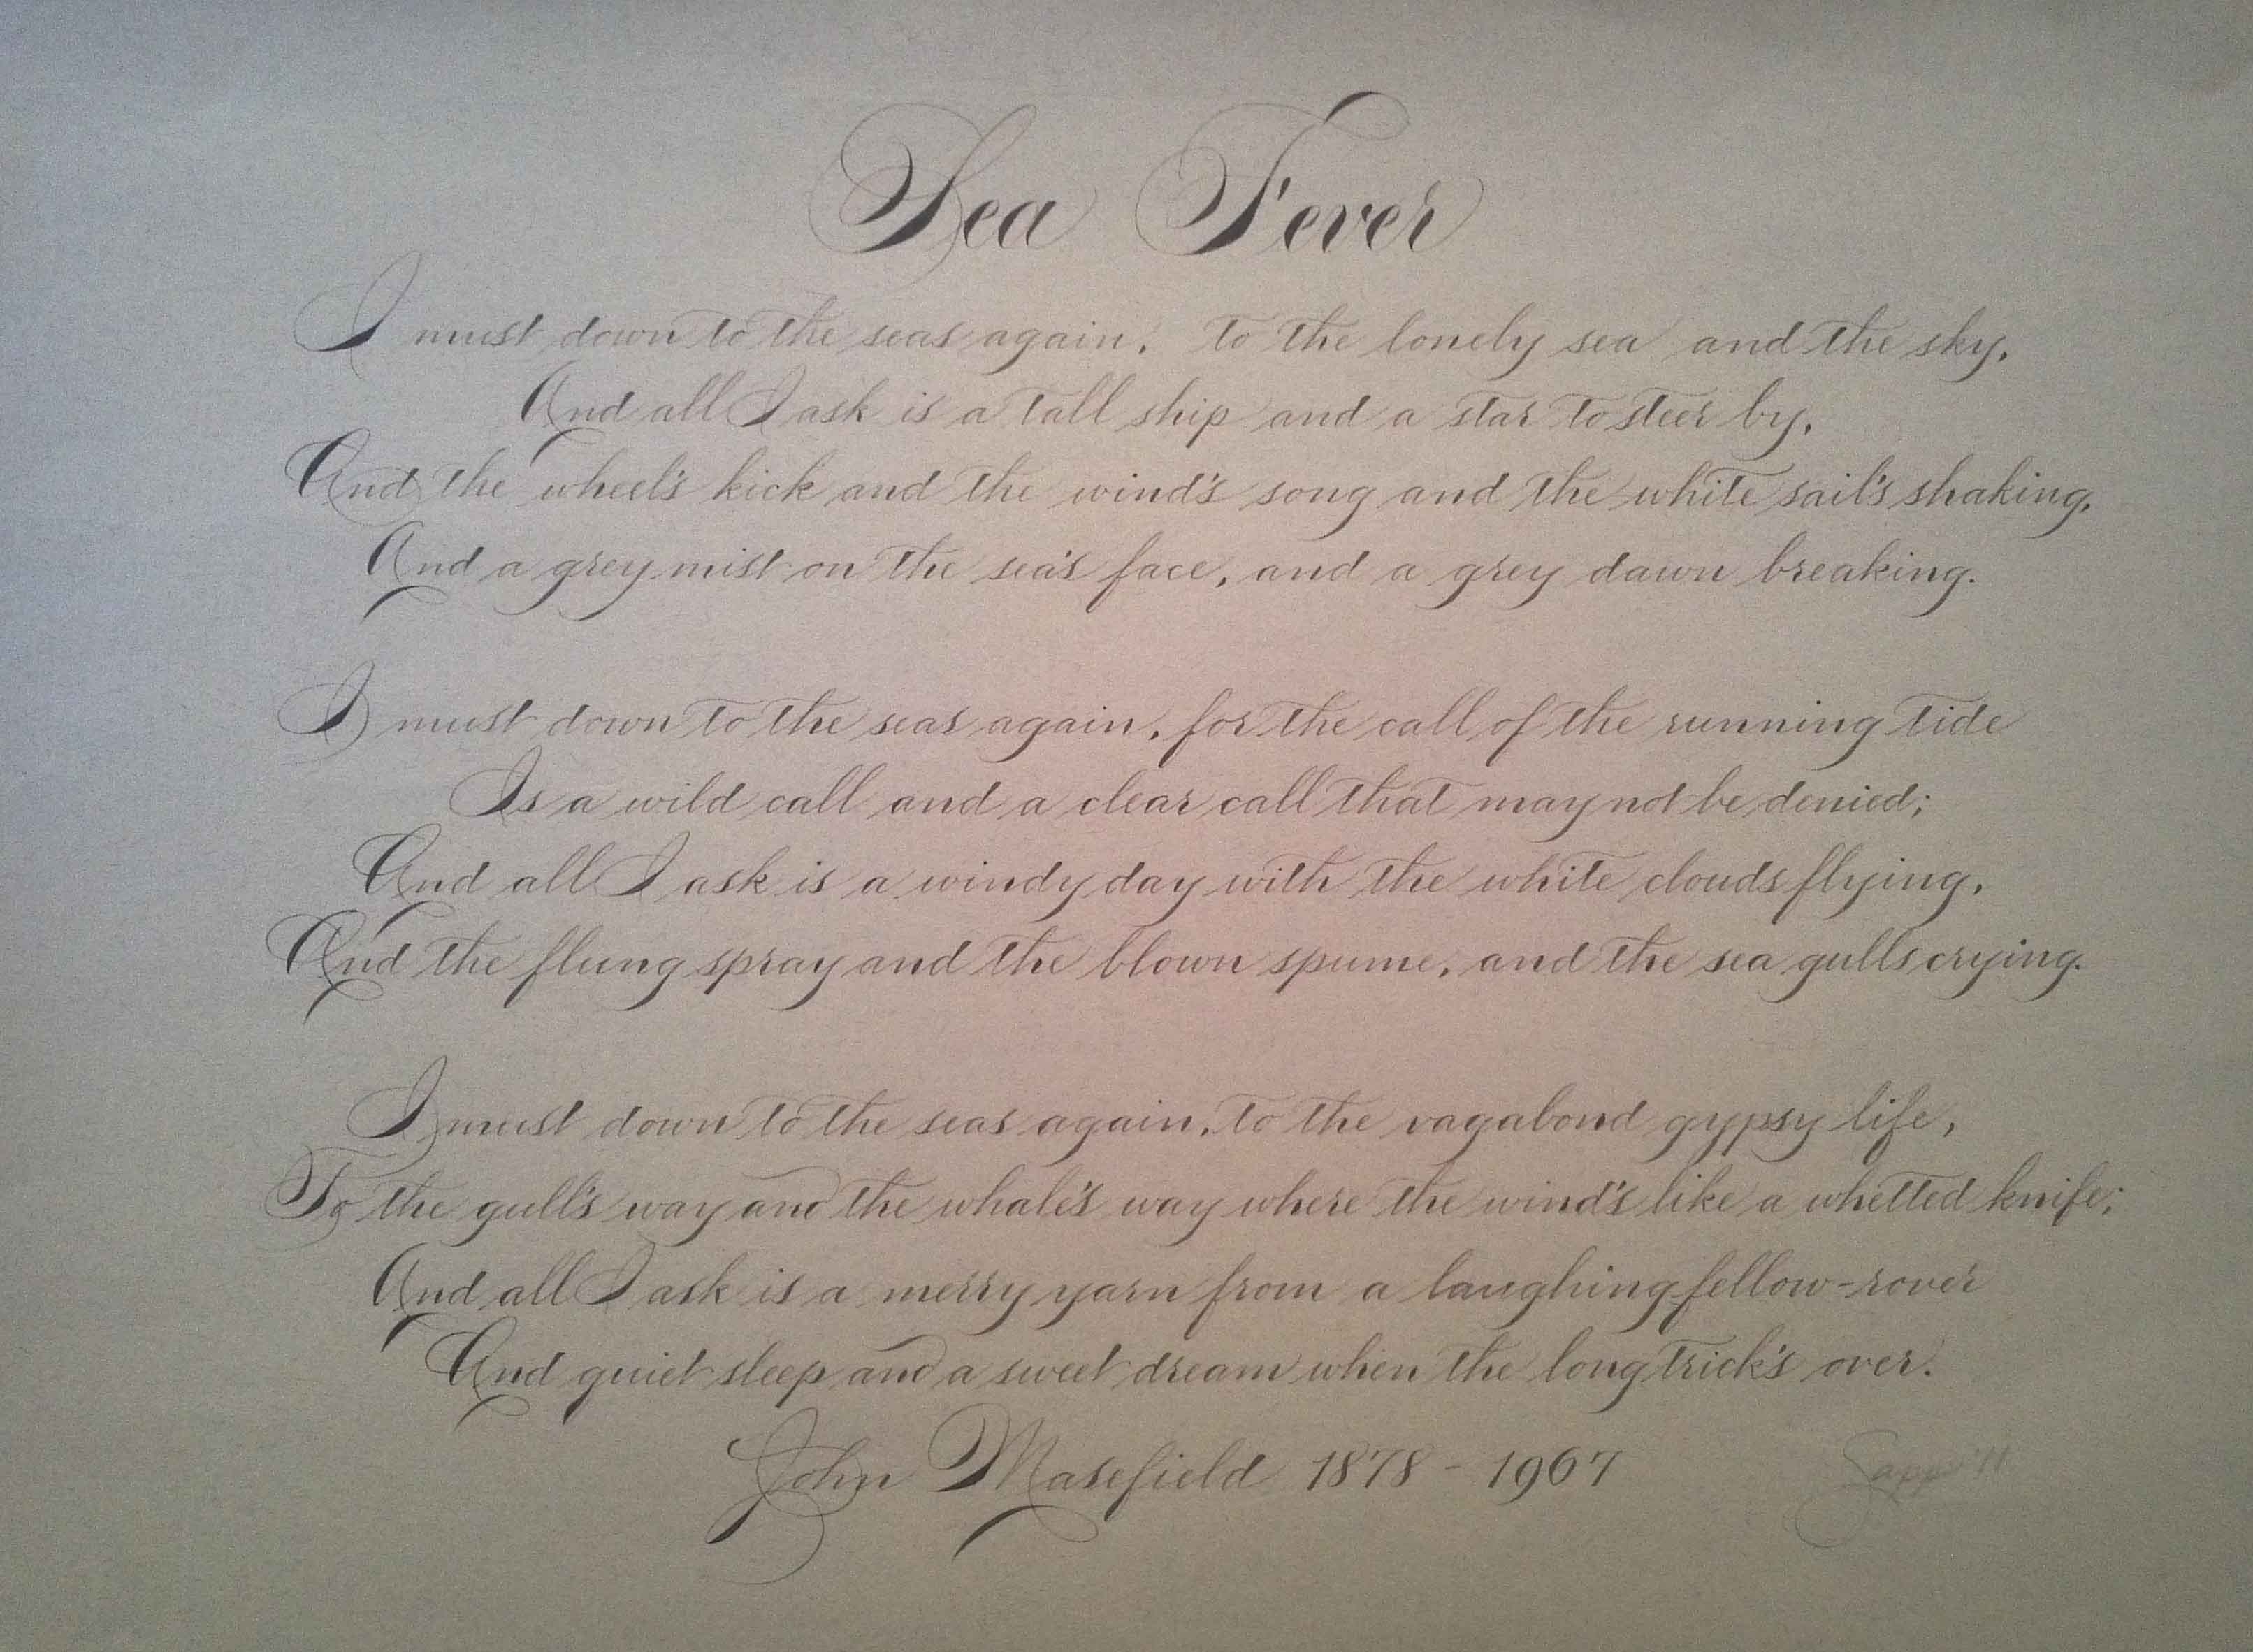 Sea Fever
I must down to the seas again, to the lonely sea and the sky,
And all I ask is a tall ship and a star to steer by,
And the wheel's kick and the wind's song and the white sail's shaking,
And a grey mist on the sea's face, and a grey dawn breaking.
I must down to the seas again, for the call of the running tide
Is a wild call and a clear call that may not be denied;
And all I ask is a windy day with the white clouds flying,
And the flung spray and the blown spume, and the sea gulls crying.
I must down to the seas again, to the vagabond gypsy life,
To the gull's way and the whale's way where the wind's like a whetted knife;
And all I ask is a merry yarn from a laughing fellow-rover
And quiet sleep and a sweet dream when the long trick's over.
John Masefield 1878 - 1967
Sapp '11